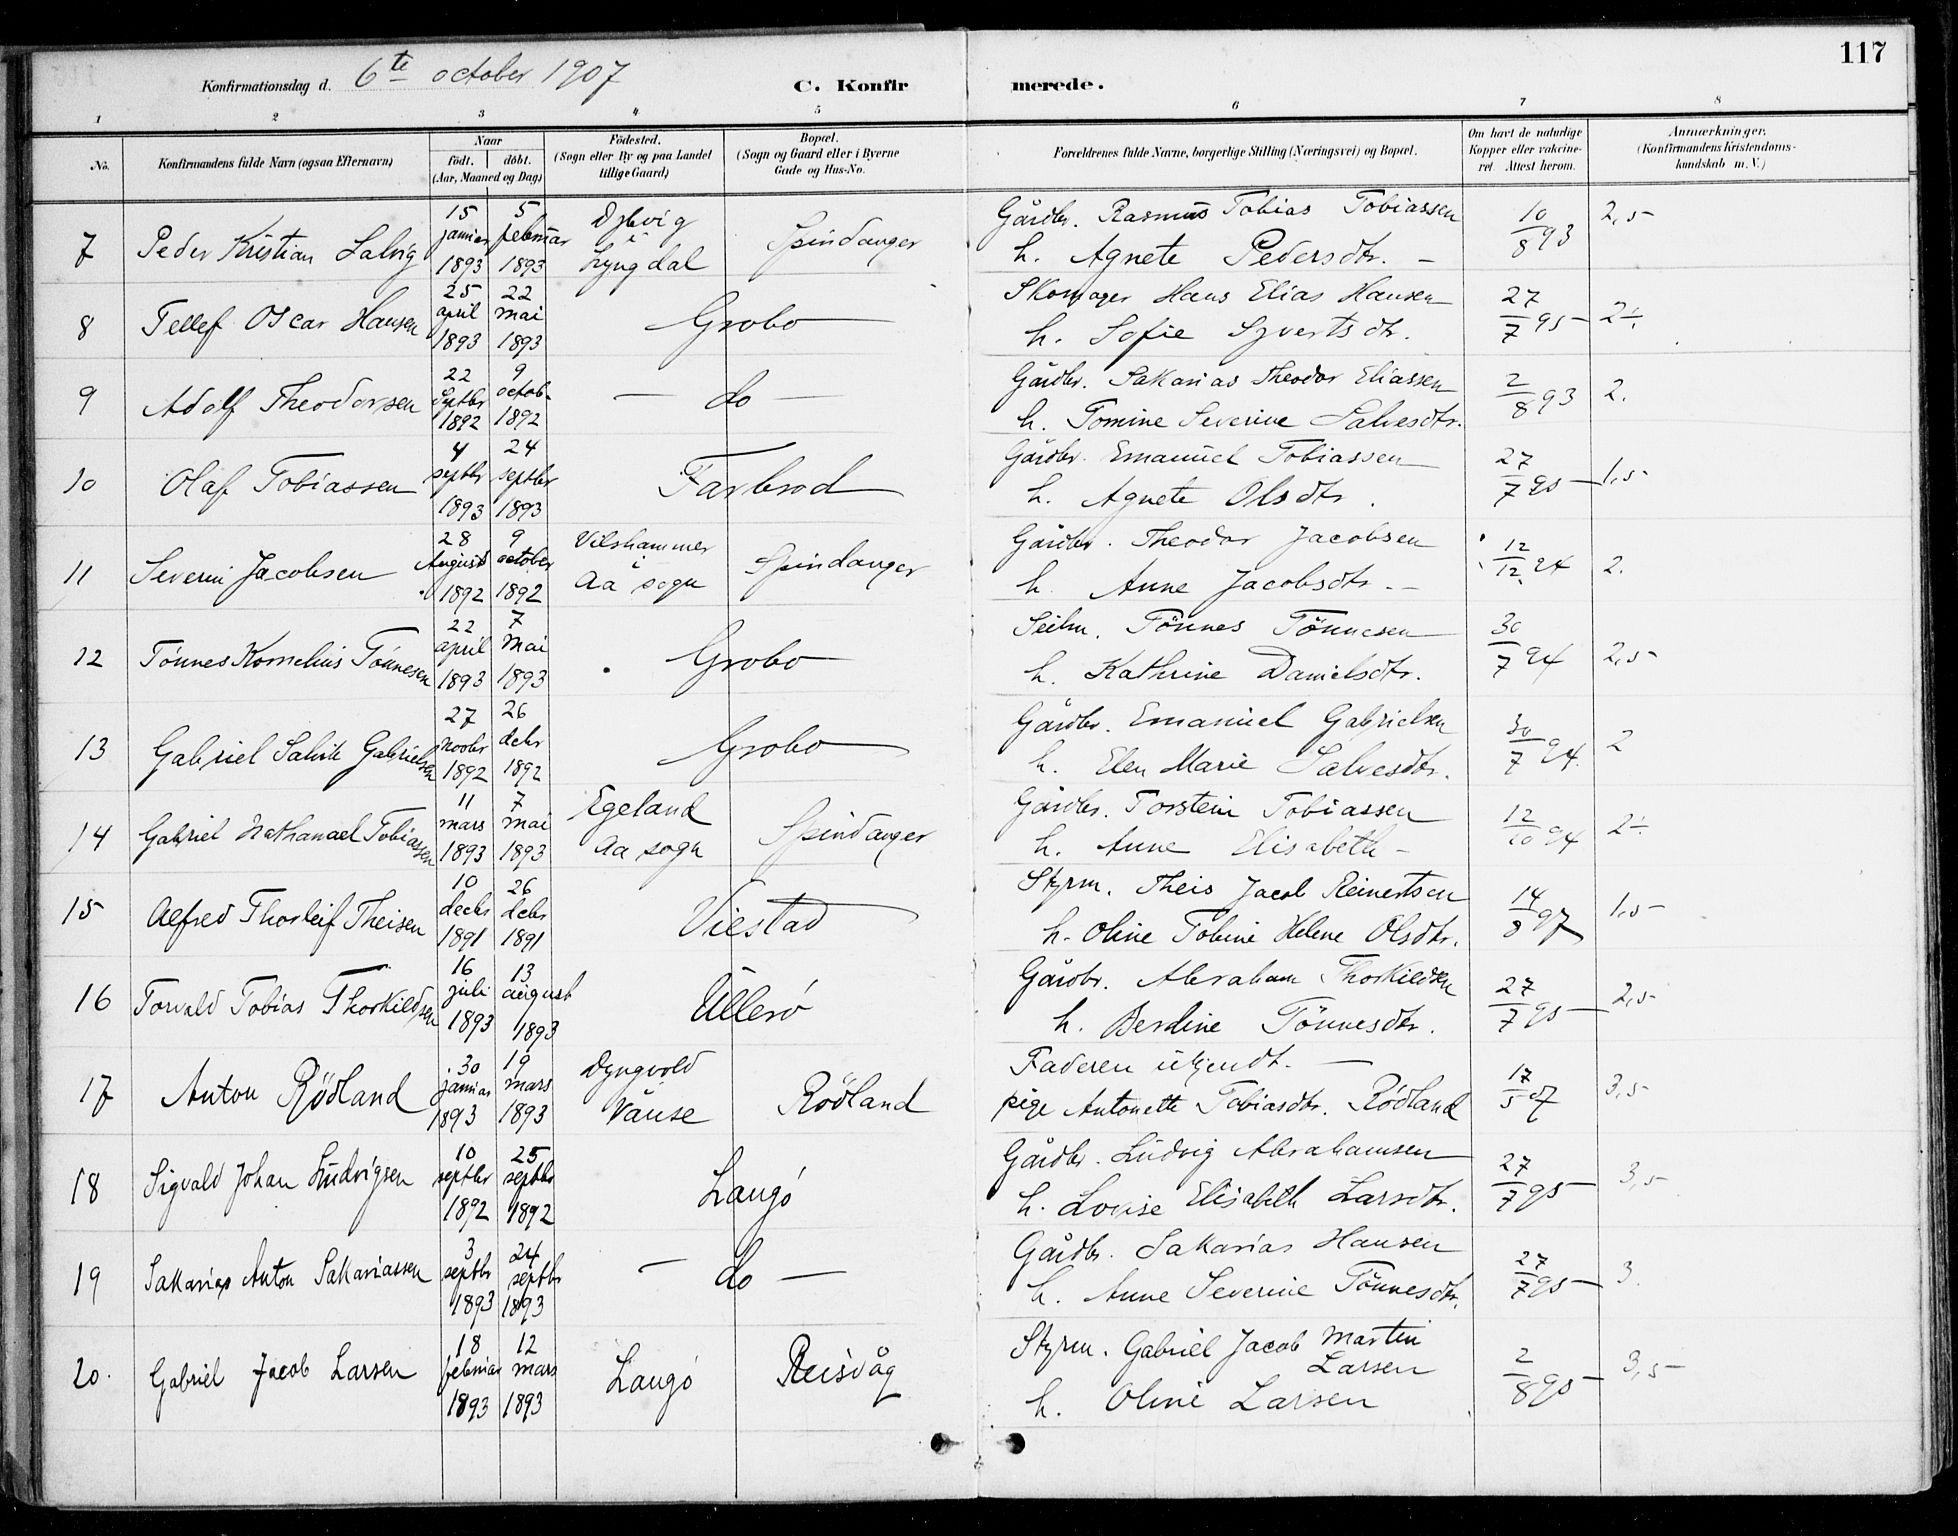 117
Konfirmationsdag d. 6te october 1907
C. Konfirmerede.
1 2 3 4 5 6 7 8
No.
Konfirmandens fulde Navn (ogsaa Efternavn)
Naar
født. | døbt.
(Aar, Maaned og Dag)
Födested.
(Sogn eller By og paa Landet
tillige Gaard)
Bopæl.
(Sogn og Gaard eller i Byerne
Gade og Hus-No.
Forældrenes fulde Navne, borgerlige Stilling (Næringsvei) og Bopæl.
Om havt de naturlige
Kopper eller vakcine-
ret. Attest herom.
Anmærkninger.
(Konfirmandens Kristendoms-
kundskab m. V.)
7 Peder Kristian Salvig
15 januar 1893
5 februar 1893
i Lyngdal
Spindanger
Gårdbr. Rasmus Tobias Tobiassen
h. Agnete Pedersdtr. –
10/8 93
2,5
8 Tellef Oscar Hansen
25 april 1893
22 mai 1893
Grobo
Skomager Hans Elias Hansen
h. Sofie Syvertsdtr.
27/7 95
2÷
9 Adolf Theodorsen
22 septbr 1892
9 octob. 1892
— do —
Gårdbr. Sakarias Theodor Eliassen
h. Tomine Severine Salvesdtr.
2/8 93
2.
10 Olaf Tobiassen
4 septbr 1893
24 septbr 1893
Farbrod
Gårdbr. Emanuel Tobiassen
h. Agnete Olsdtr.
27/7 95
1,5
11 Severin Jacobsen
28 August 1892
9 october 1892
Vilshammer
i
Aa sogn
Spindanger
Gårdbr. Theodor Jacobsen
h. Anne Jacobsdtr. –
12/12 94
2.
12 Tønnes Kornelius Tønnesen
22 april 1893
7 mai 1893
Grobo
Seilm. Tönnes Tönnesen
h. Kathrine Danielsdtr.
30/7 94
2,5
13 Gabriel Salvik Gabrielsen
27 novbr 1892
26 decbr 1892
Grobo
Gårdbr. Emanuel Gabrielsen
h. Elen Marie Salvesdtr.
30/7 94
2
14 Gabriel Nathanael Tobiassen
11 mars 1893
7 mai 1893
Egeland
Aa sogn
Spindanger
Gårdbr. Torstein Tobiassen
h. Anne Elisabeth –
12/10 94
2÷
15 Alfred Thorleif Theisen
10 decbr 1891
26 decbr 1891
Viestad
Styrm. Theis Jacob Reinertsen
h. Oline Tobine Helene Olsdtr.
14/8 97
1,5
16 Torvald Tobias Thorkildsen
16 juli 1893
13 august 1893
Ullerø
Gårdbr. Abraham Thorkildsen
h. Berdine Tönnesdtr.
27/7 95
2,5
17 Anton Rödland
30 januar 1893
19 mars 1893
Dyngvold
Vanse
Rödland
Faderen ukjendt. —
pige Antonette Tobiasdtr. Rödland
17/5 07
3,5
18 Sigvald Johan Ludvigsen
10 septbr 1892
25 septbr 1892
Langø
Gårdbr. Ludvig Abrahamsen
h. Lovise Elisabeth Larsdtr.
27/7 95
3,5
19 Sakarias Anton Sakariassen
3 septbr 1893
24 septbr 1893
— do —
Gårdbr. Sakarias Hansen
h. Anne Severine Tönnesdtr.
27/7 95
3.
20. Gabriel Jacob Larsen
18 februar 1893
12 mars 1893
Langø
Reisvåg
Styrm. Gabriel Jacob Martin
Larsen
h. Oline Larsen
2/8 95
3,5